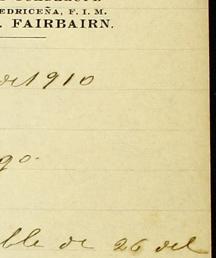 EDRICEÑA, F. I. M.
. FAIRBAIRN.
de 1910
go.
ble de 26 del